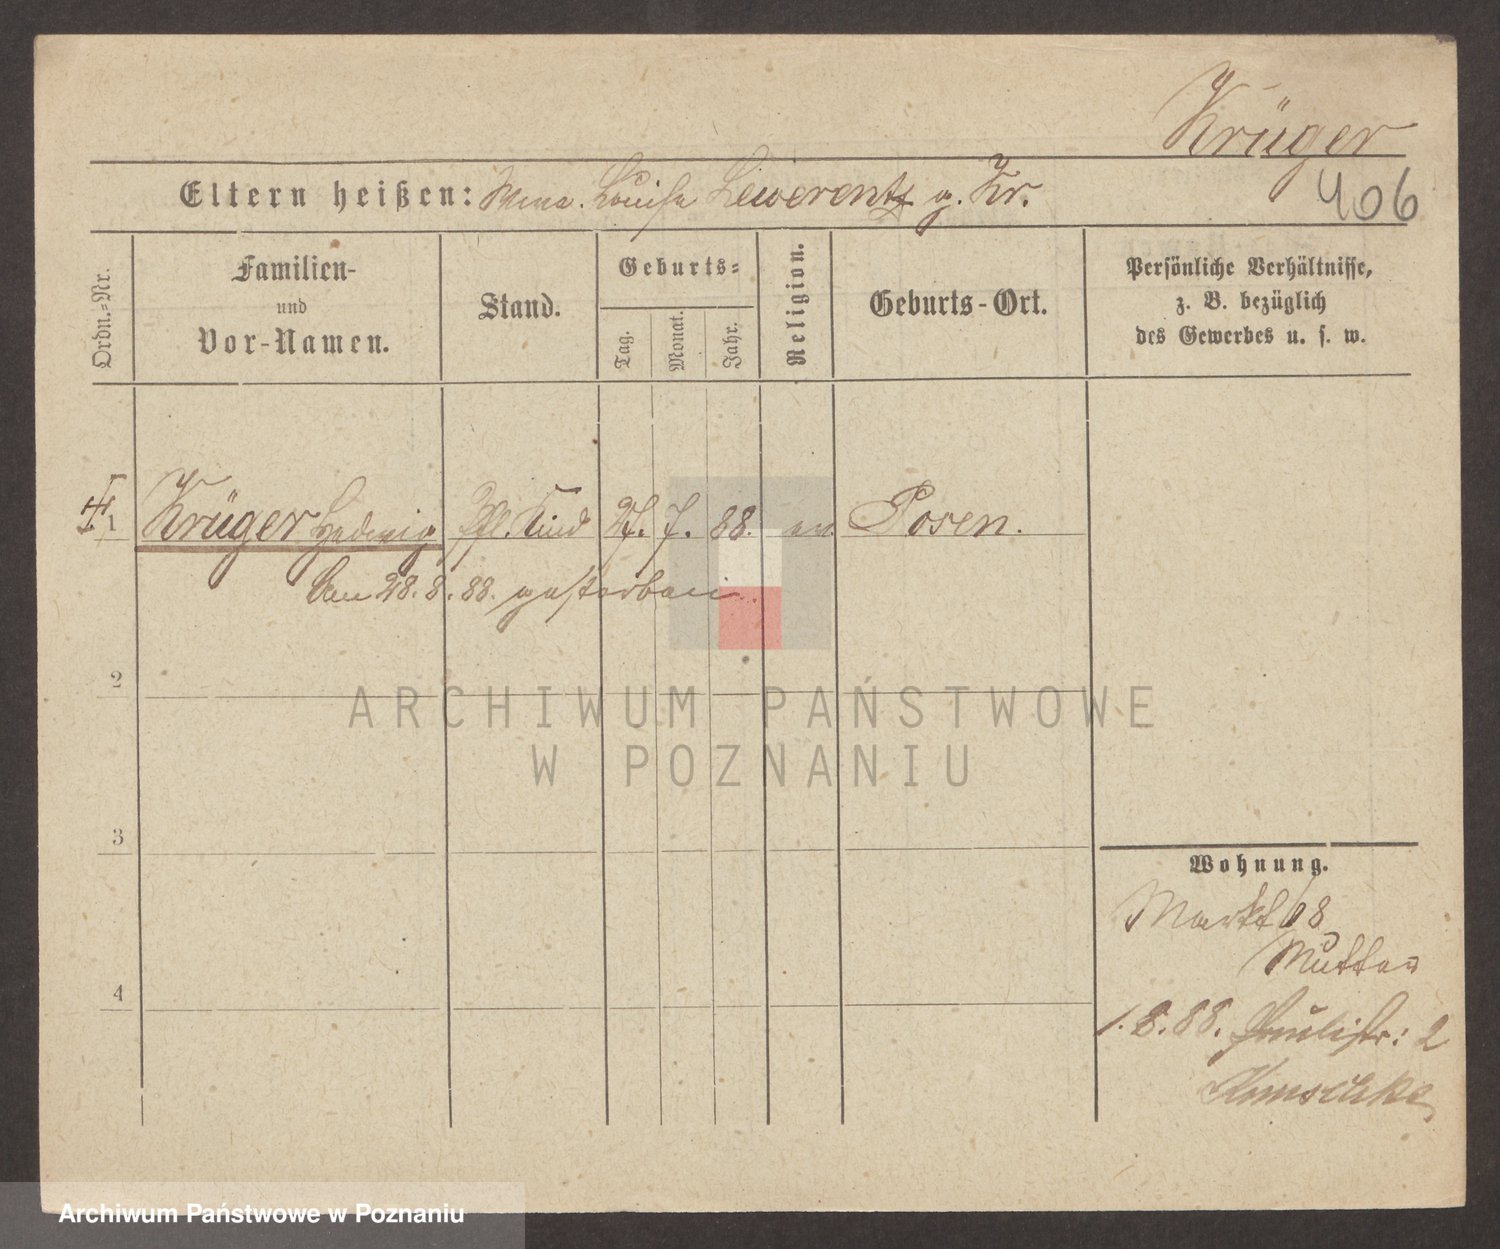 Krüger
Eltern heißen: Wwe. Louise Lewerentz g. Kr.
406
Ordn.-Nr.
Familien-
und
Vor-Namen.
Stand.
Geburts-
Tag.
Monat.
Jahr.
Religion.
Geburts-Ort.
Persönliche Verhältnisse,
z. B. bezüglich
des Gewerbes u. s. w.
1 Krüger Hedwig Pfl. Kind 27. 7. 88. ev. Posen.
Den 28. 8. 88. gestorben.
2
3
4
Wohnung.
Markt 68
Mutter
1. 8. 88. Paulistr: 2
ARCHIWUM PAŃSTWOWE
W POZNANIU
Archiwum Państwowe w Poznaniu